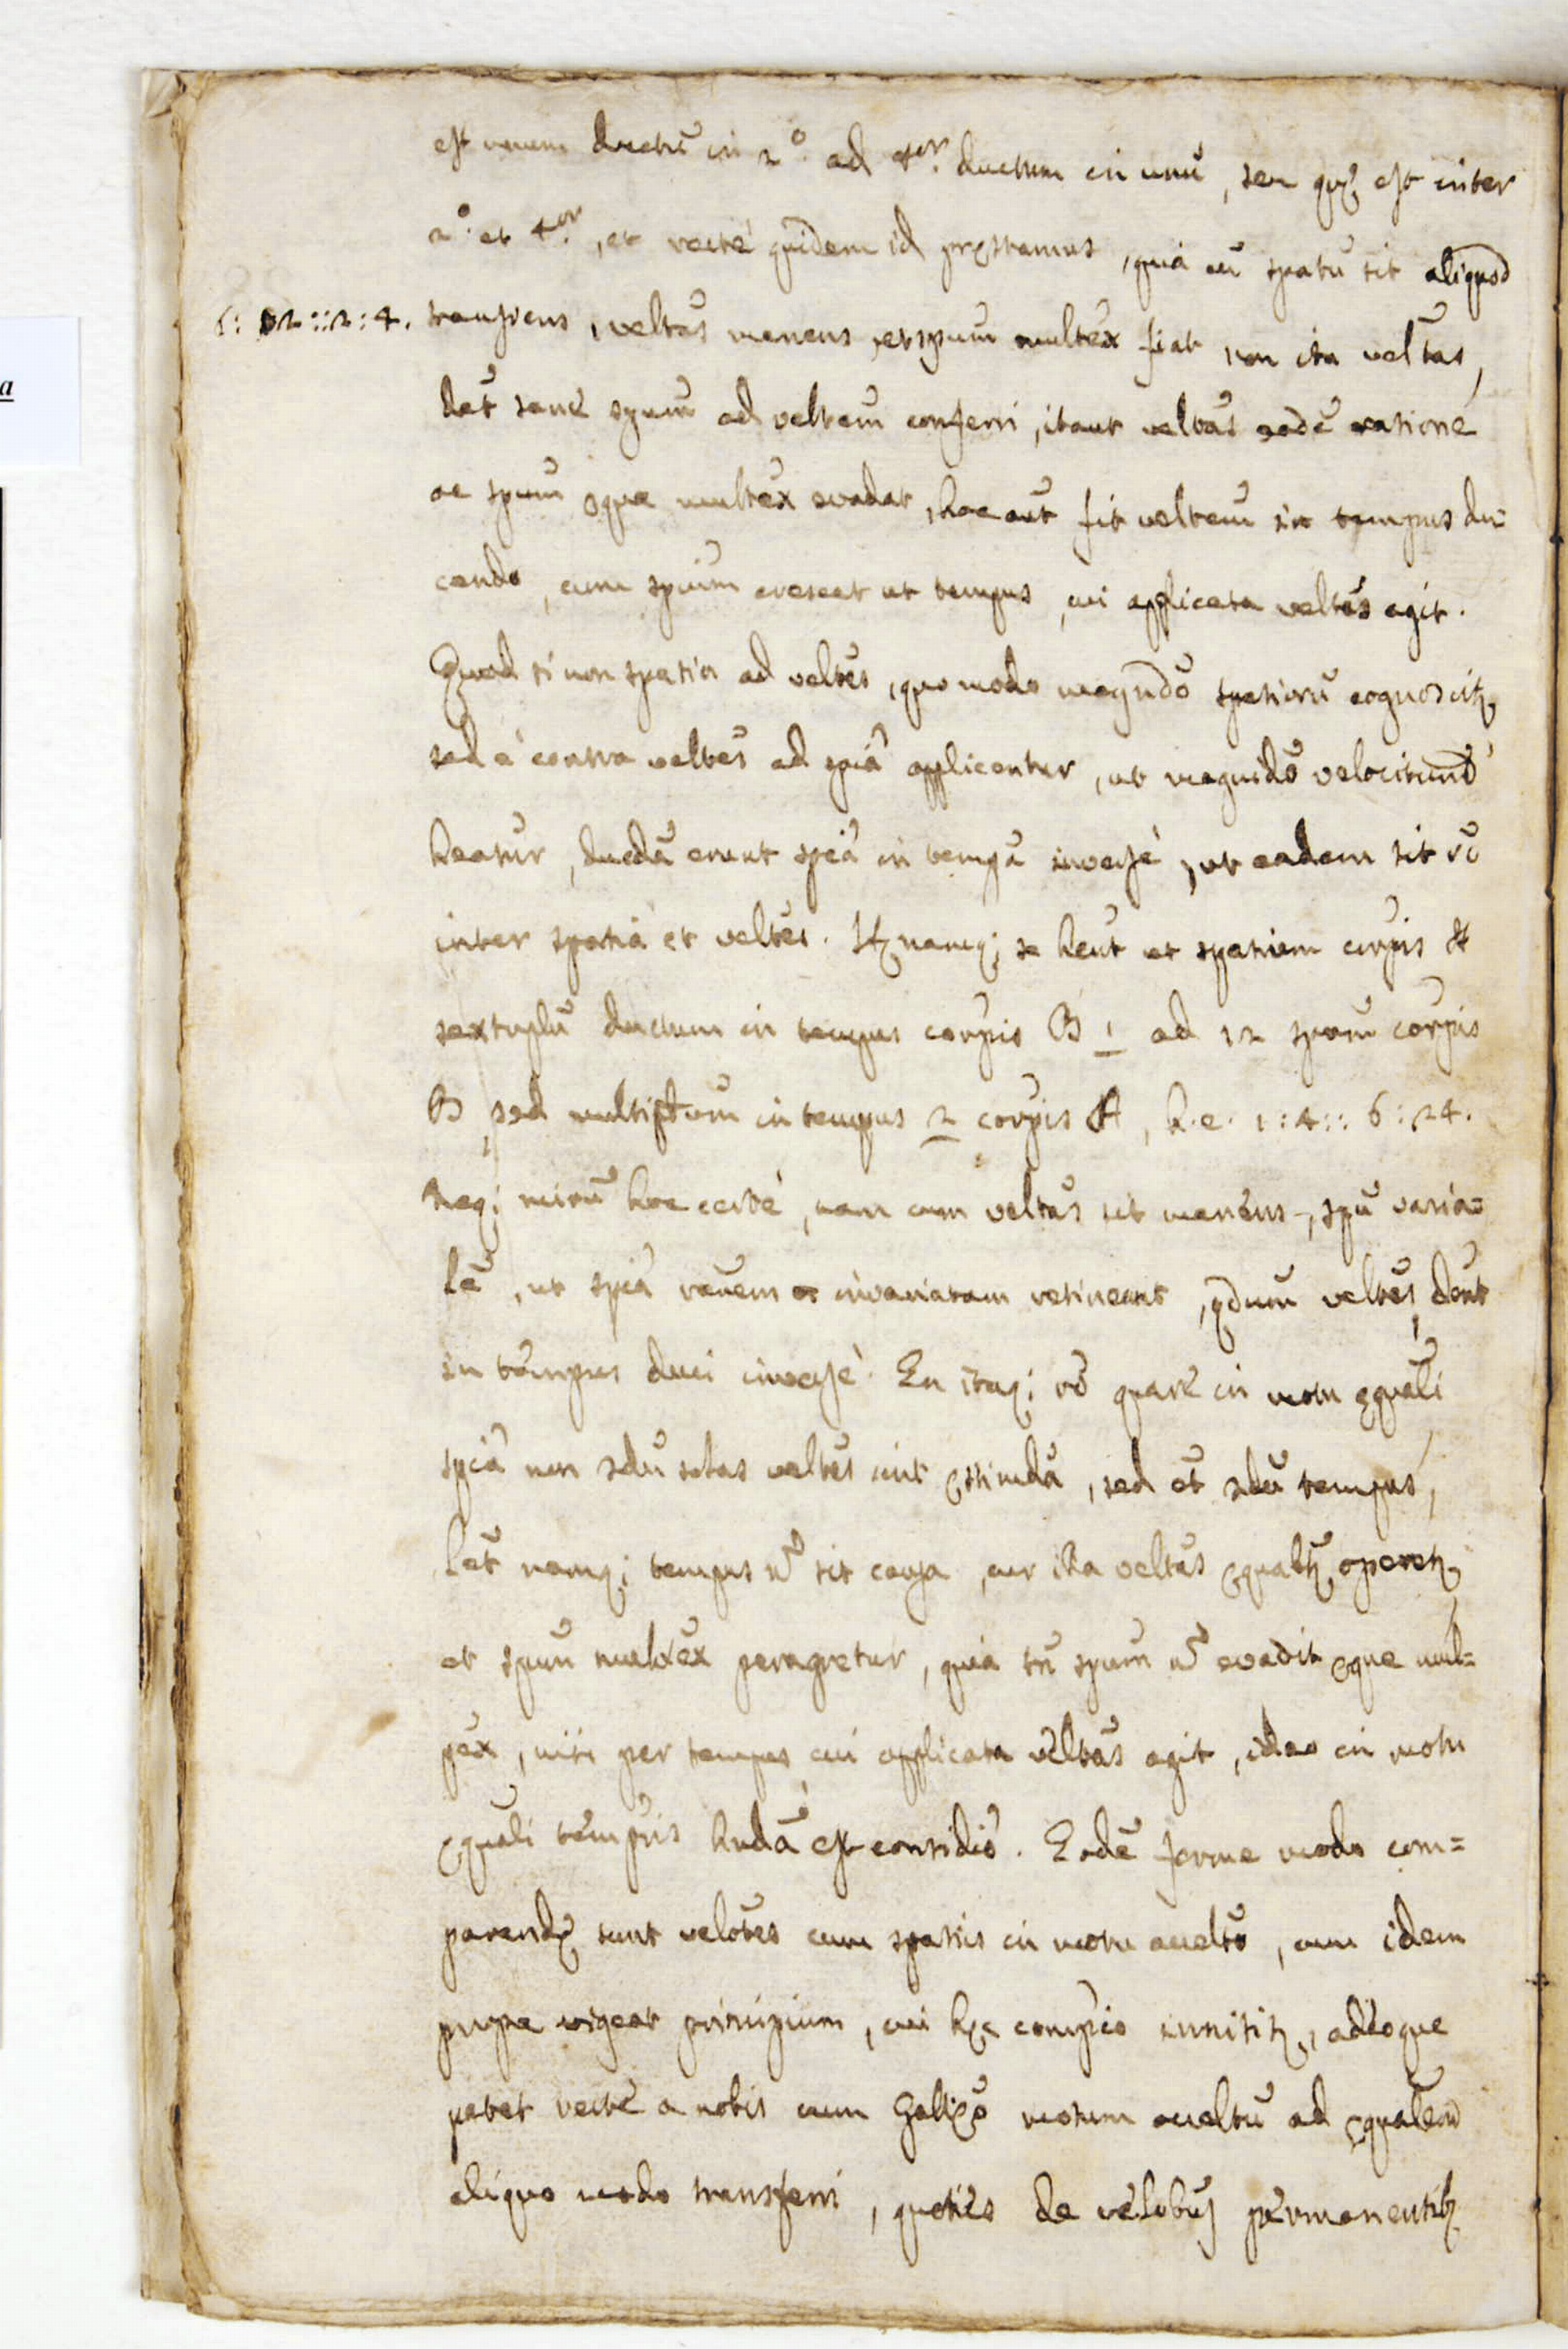 est unum ductũ in 2º. ad 4or. ductum in unũ, seu quę est inter
2º. et 4or., et recté quidem id pręstamus, quia cũ spatiũ sit aliquod
6: 12 :: 2 : 4. transiens, veltas̃ manens, et spium̃ multex̃ fiat, non ita veltas̃,
det̃ sané spium̃ ad veltem̃ conferri, itaut veltas̃ eadẽ ratione
ac spium̃ ęque multex̃ evadat, hoc aut̃ fit veltem̃ in tempus du=
cendo, cum spium̃ crescat ut tempus, cui applicata veltas̃ agit.
Quod si non spatia ad veltes̃, quo modo magndõ spatiorũ cognoscitꝫ
sed é contra veltes̃ ad spiã applicentur, ut magnidõ velocitum̃
heatur̃, ducdã erunt spiã in tempa inversé, ut eadem sit rõ
inter spatia et veltes̃. Itꝫ namq; se heñt ut spatium corpis̃ A
sextuplũ ductum in tempus corpis̃ B 1 ad 12 spium̃ corpis̃
B, sed multiptum̃ in tempus 2 corpis̃ A, h.e. 1:4:: 6:24.
Neq; mirũ hoc certé, nam cum veltas̃ sit manens, spiũ varia=
lẽ, ut spiã ronem̃ invariatam retineant, qdum̃ veltes̃, deñt
in tempus duci inversé. En itaq; rõ quaré in motu ęquali
spiã non sdũ solas veltes̃ sint ęstimdã, sed et̃ sdũ tempus,
let̃ namq; tempus ñ sit causa, cur ita veltas̃ ęqualtꝫ operetꝫ
et spium̃ multex̃ peragretur, quia tñ spium̃ ñ evadit ęque mul=
pex̃, nisi per tempus cui applicata veltas̃ agit, ideo in motu
ęquali tempris̃ hndã est consideõ. Eodẽ ferme modo com=
parendę sunt velotes̃ cum spatiis in motu acceltõ, cum idem
prope vigeat principium, cui hęc compio innititꝫ, adeoque
patet recté a nobis cum Galilęõ motum acceltũ ad ęqualem
aliquo modo transferri, quoties de velobus̃ permanentibꝫ